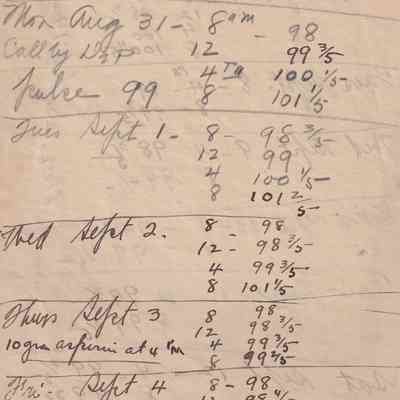 Mon Aug 31 - 8 am - 98
Call by Dr 12 99 3/5
4 100 1/5
Pulse 99 8 101 1/5
Tues Sept 1 - 8 - 98 3/5
12 99
4 100 1/5
8 101 2/5
Wed Sept 2. 8 - 98
12 - 98 3/5
4 99 3/5
8 101 1/5
Thurs Sept 3 8 98
12 98 3/5
10 gm aspirin at 4 PM 4 99 3/5
8 99 2/5
Fri - Sept 4 8 - 98
12 98 4/5